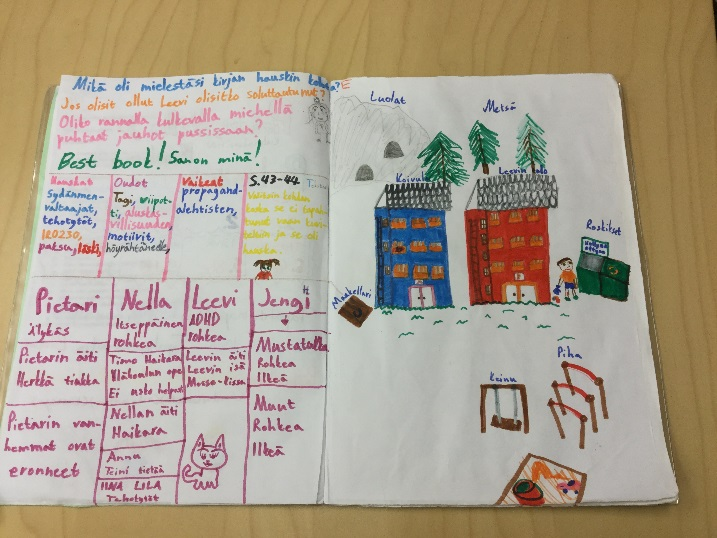 Mikä oli mielestäsi kirjan hauskin kohta?
Jos olisit ollut Leevi olisitko soluttautunut?
Oliko rannalla kulkevalla miehellä
puhtaat jauhot pussissaan?
Best book! Sanon minä!
Hauskat
Sydänmen-
valtaajat,
tehotytöt,
paksu,
Oudot
Tagi,
motiivit,
höyrähtäneelle,
Vaikeat
propagand-
alehtisten,
S.43-44
Pietari
Älykäs
Pietarin äiti
Herkkä tiukka
Pietarin van-
hemmat ovat
eronneet
Nella
Itseppäinen
rohkea
Timo Haikara
Yläkoulun ope
Ei usko helposti
Nellan äiti
Haikara
Annu
Teini tietää
LILA
Tehotytöt
Leevi
ADHD
rohkea
Leevin äiti
Leevin isä
Musso-kissa
Jengi
Mustatalla
Rohkea
Ilkeä
Muut
Rohkea
Ilkeä
Luolat
Metsä
Koivula
Leevin talo
Roskikset
Maakellari
Keinu
Piha